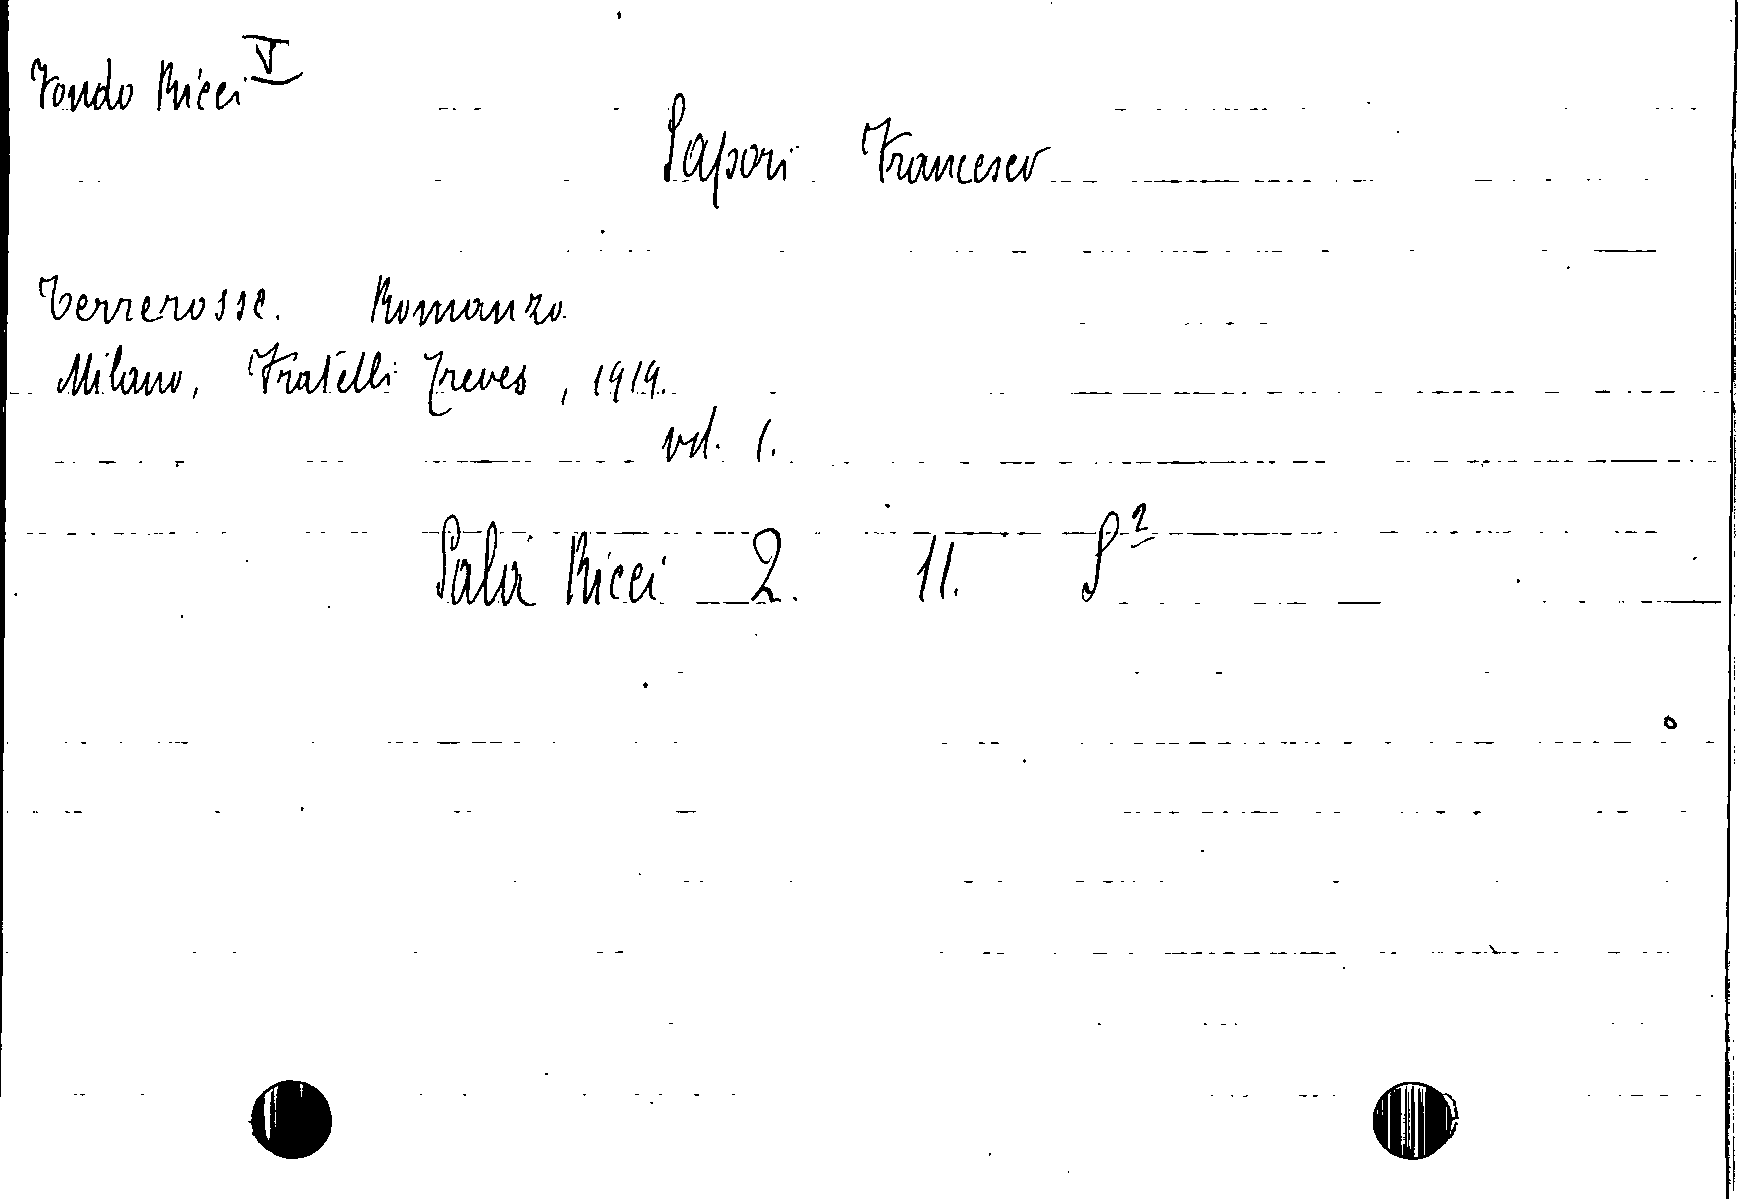 Fondo Ricci V
Sapori Francesco
Terrerosse. Romanzo.
Milano, Fratelli Treves, 1919.
vol. 1.
Sala Ricci 2. 11. S²